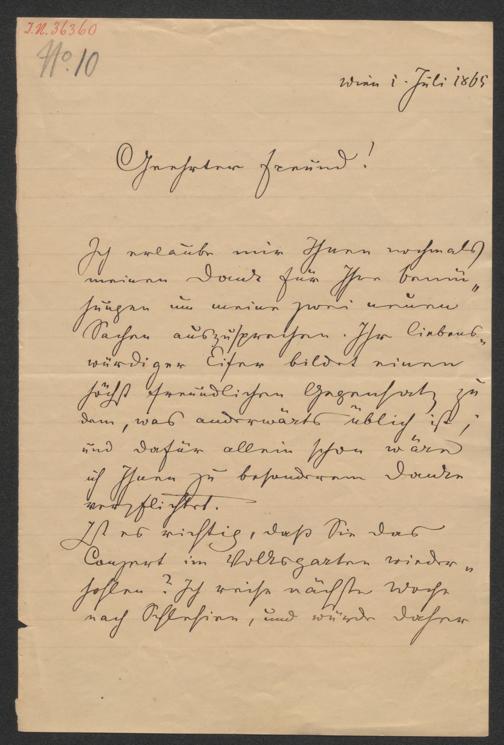 I.N. 36360
No. 10
Wien 1. Juli 1865
Geehrter Freund!
Ich erlaube mir Ihnen nochmals
meinen Dank für Ihre Bemü„
hungen um meine zwei neuen
Sachen auszusprechen. Ihr liebens„
würdiger Eifer bildet einen
höchst freundlichen Gegensatz zu
dem, was anderwärts üblich ist,
und dafür allein schon wäre
ich Ihnen zu besonderem Danke
verpflichtet.
Ist es richtig, daß Sie das
Conzert im Volksgarten wieder„
hohlen? Ich reise nächste Woche
nach Schlesien, und würde daher